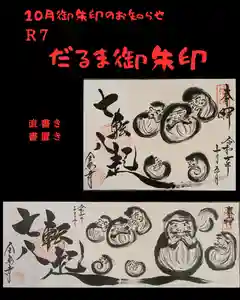 10月御朱印のお知らせ
R7
だるま御朱印
直書き
書置き
七転
八起
奉拝
七転
八起
奉拝